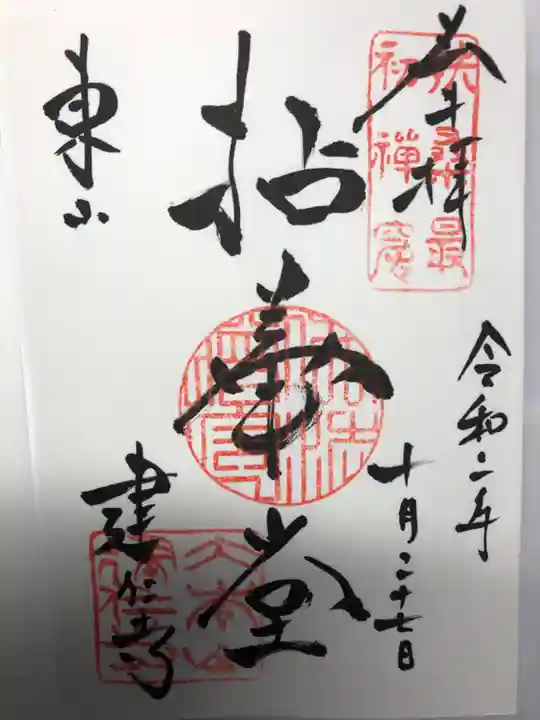 奉拝
扶桑最
初禅窟
令和二年
十月二十七日
拈華堂
東山
建仁寺
大本山